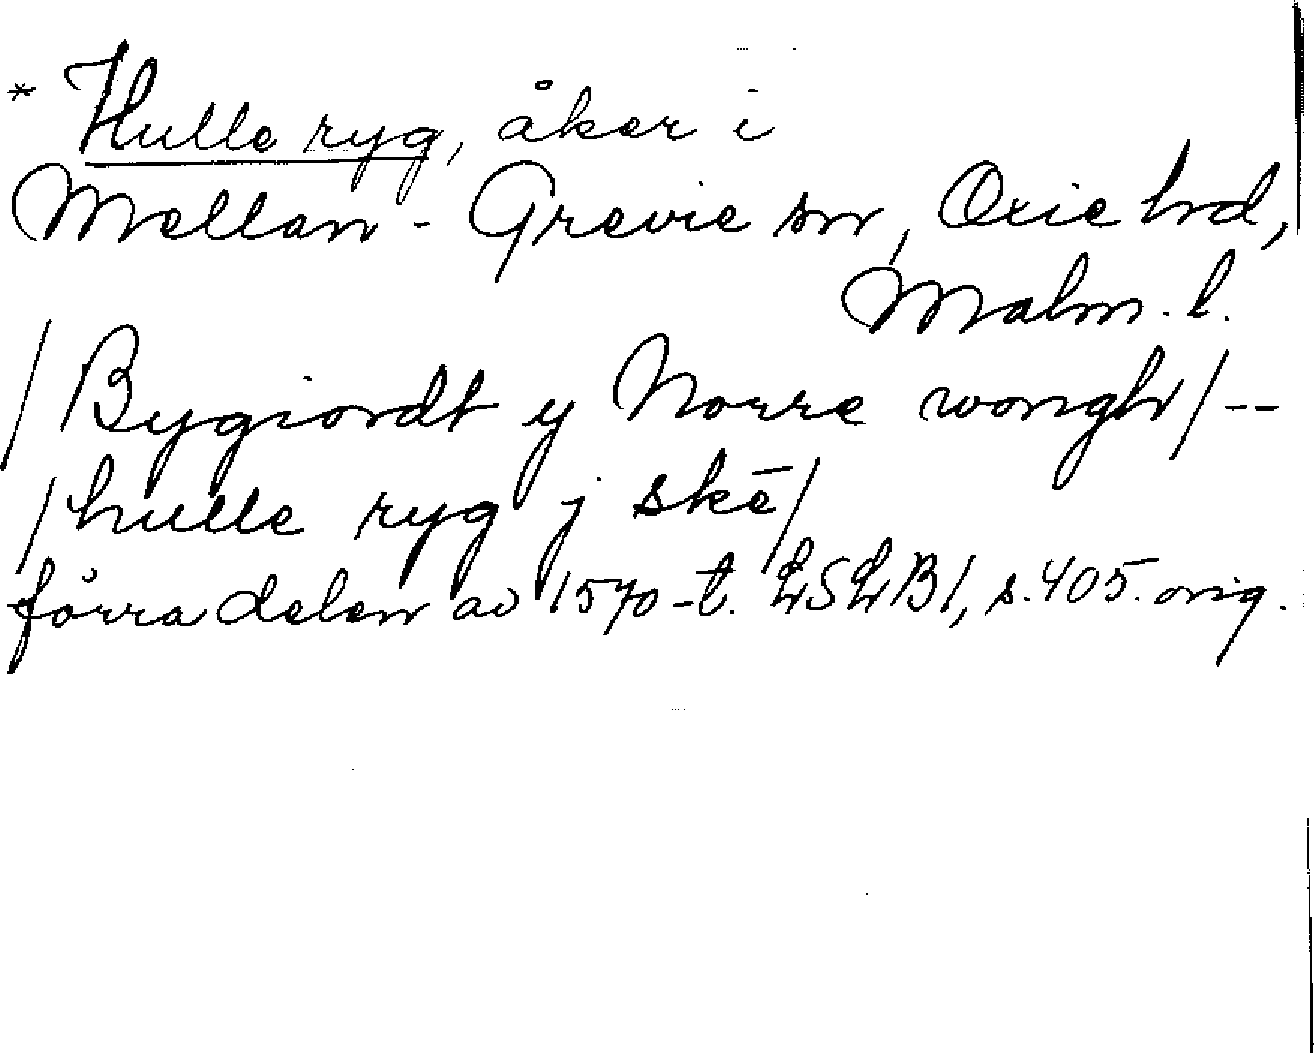 * Hulle ryg, åker i
Mellan-Grevie sn, Oxie hd,
Malm. l.
/Bygiordt y Norre wongh/--
/hulle ryg j skē/
förra delen av 1570-t. LSLB1, s. 405. orig.